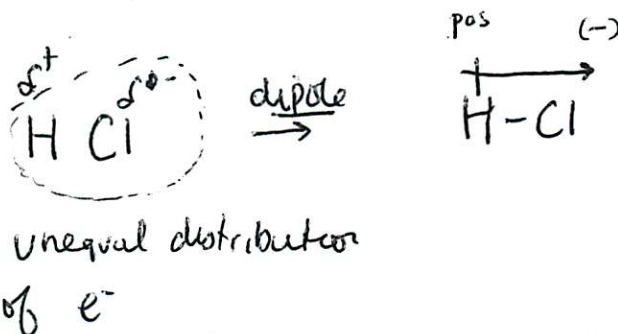 pos (-)
δ+ δ-
H Cl dipole H-Cl
unequal distribution
of e-